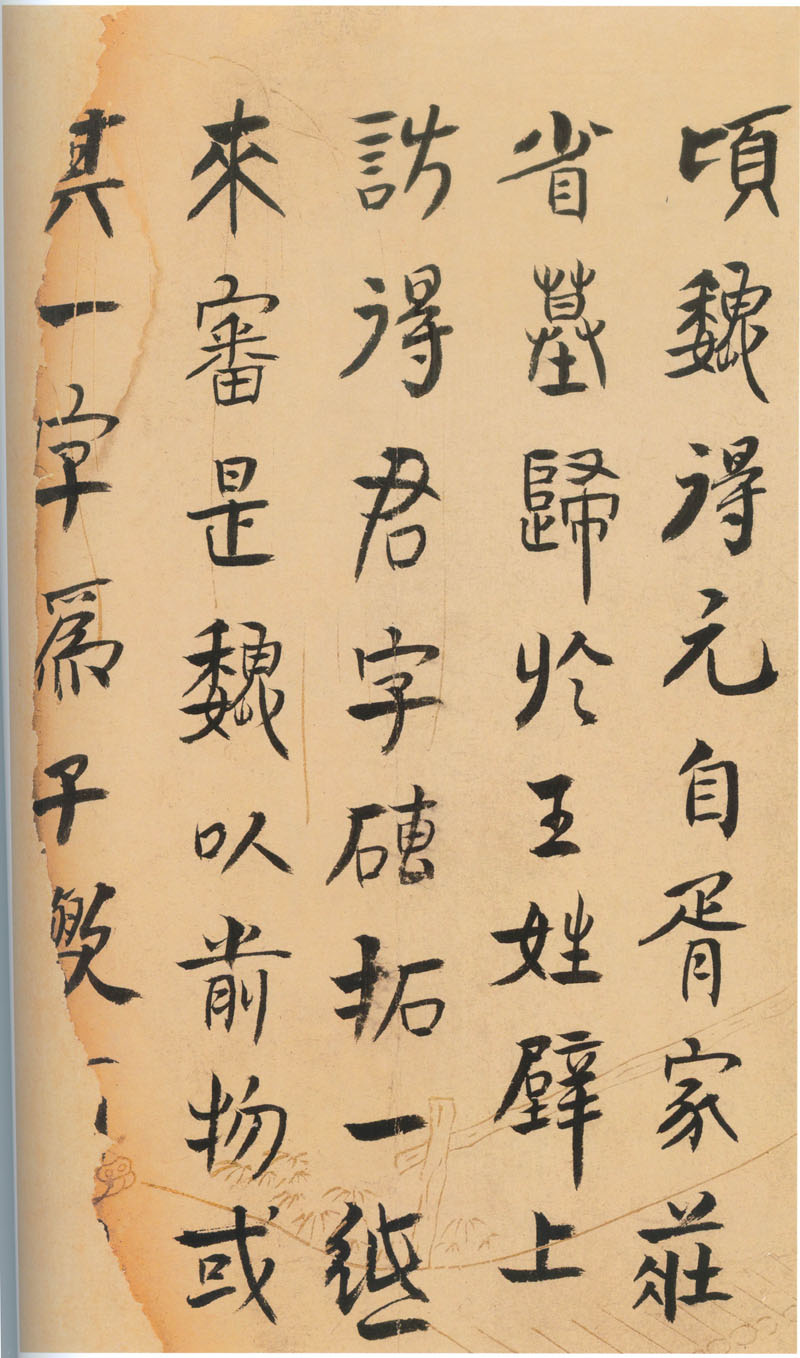 頃魏得元自胥家莊
省墓歸於王姓壁上
訪得君字磚拓一紙
來審是魏以前物或
其一字爲子